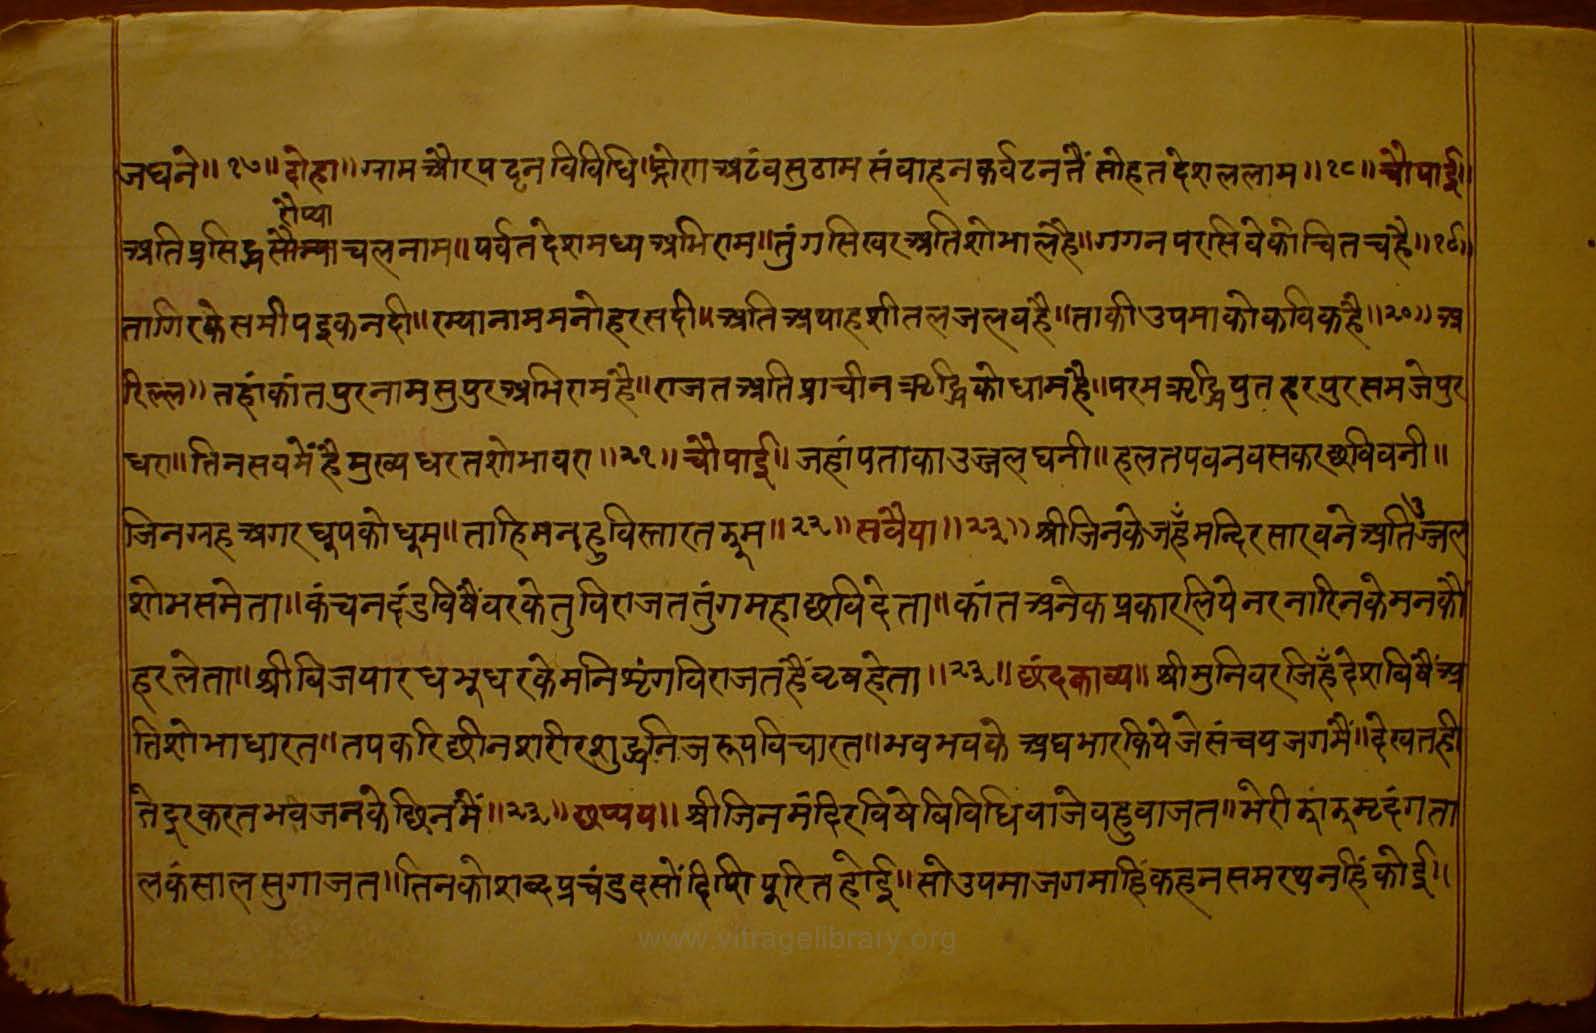 जघने॥१७॥दोहा॥ग्रामऔरपट्टनविविधि॥द्रोणाअटंवसुठामसंवाहनकर्वटनतैंसोहतदेशललाम॥१८॥चौपाई॥
रौप्या
अतिप्रसिद्धसौम्याचलनाम॥पर्वतदेशमध्यअभिराम॥तुंगसिखरअतिशोभालहै॥गगनपरसिवेकोचितचहै॥१९॥
तागिरकेसमीपइकनदी॥रम्यानाममनोहरसदी॥अतिअपाहशीतलजलवहै॥ताकीउपमाकोकविकहै॥२०॥अ
रिल्ल॥तहांकांतपुरनामसुपुरअभिरामहै॥राजतअतिप्राचीनऋद्धिकोधामहै॥परमऋद्धिपुतहरपुरसमजेपुर
धरा॥तिनसवमेंहैमुख्यधरतशोभावरा॥२१॥चौपाई॥जहांपताकाउज्जलघनी॥हलतपवनवसकरछविवनी॥
जिनग्रहअगरधूपकोधूम॥ताहिमनहुविस्तारतझूम॥२२॥सवैया॥२३॥श्रीजिनकेजहँमन्दिरसारवनेअतिउज्जल
शोभसमेता॥कंचनदंडविषैंवरकेतुविराजततुंगमहाछविदेता॥कांतअनेकप्रकारलियेनरनारिनकेमनकौ
हरलेता॥श्रीविजपारधभूधरकेमनिशृंगविराजतहैंवृषहेता॥२३॥छंदकाव्य॥श्रीमुनिवरजिहँदेशविषैंअ
तिशोभाधारत॥तपकरिछीनशरीरशुद्धनिजरूपविचारत॥भवभवकेअघभारकियेजेसंचयजगमैं॥देखतही
तेदूरकरतभवजनकेछिनमें॥२३॥छप्पय॥श्रीजिनमंदिरविषेविविधिवाजेवहुवाजत॥भेरीझांझमृदंगता
लकंसालसुगाजत॥तिनकोशब्दप्रचंडदसोंदिशिपूरितहोई॥सोउपमाजगमाहिंकहनसमरथनहिंकोई॥
www.vitragelibrary.org